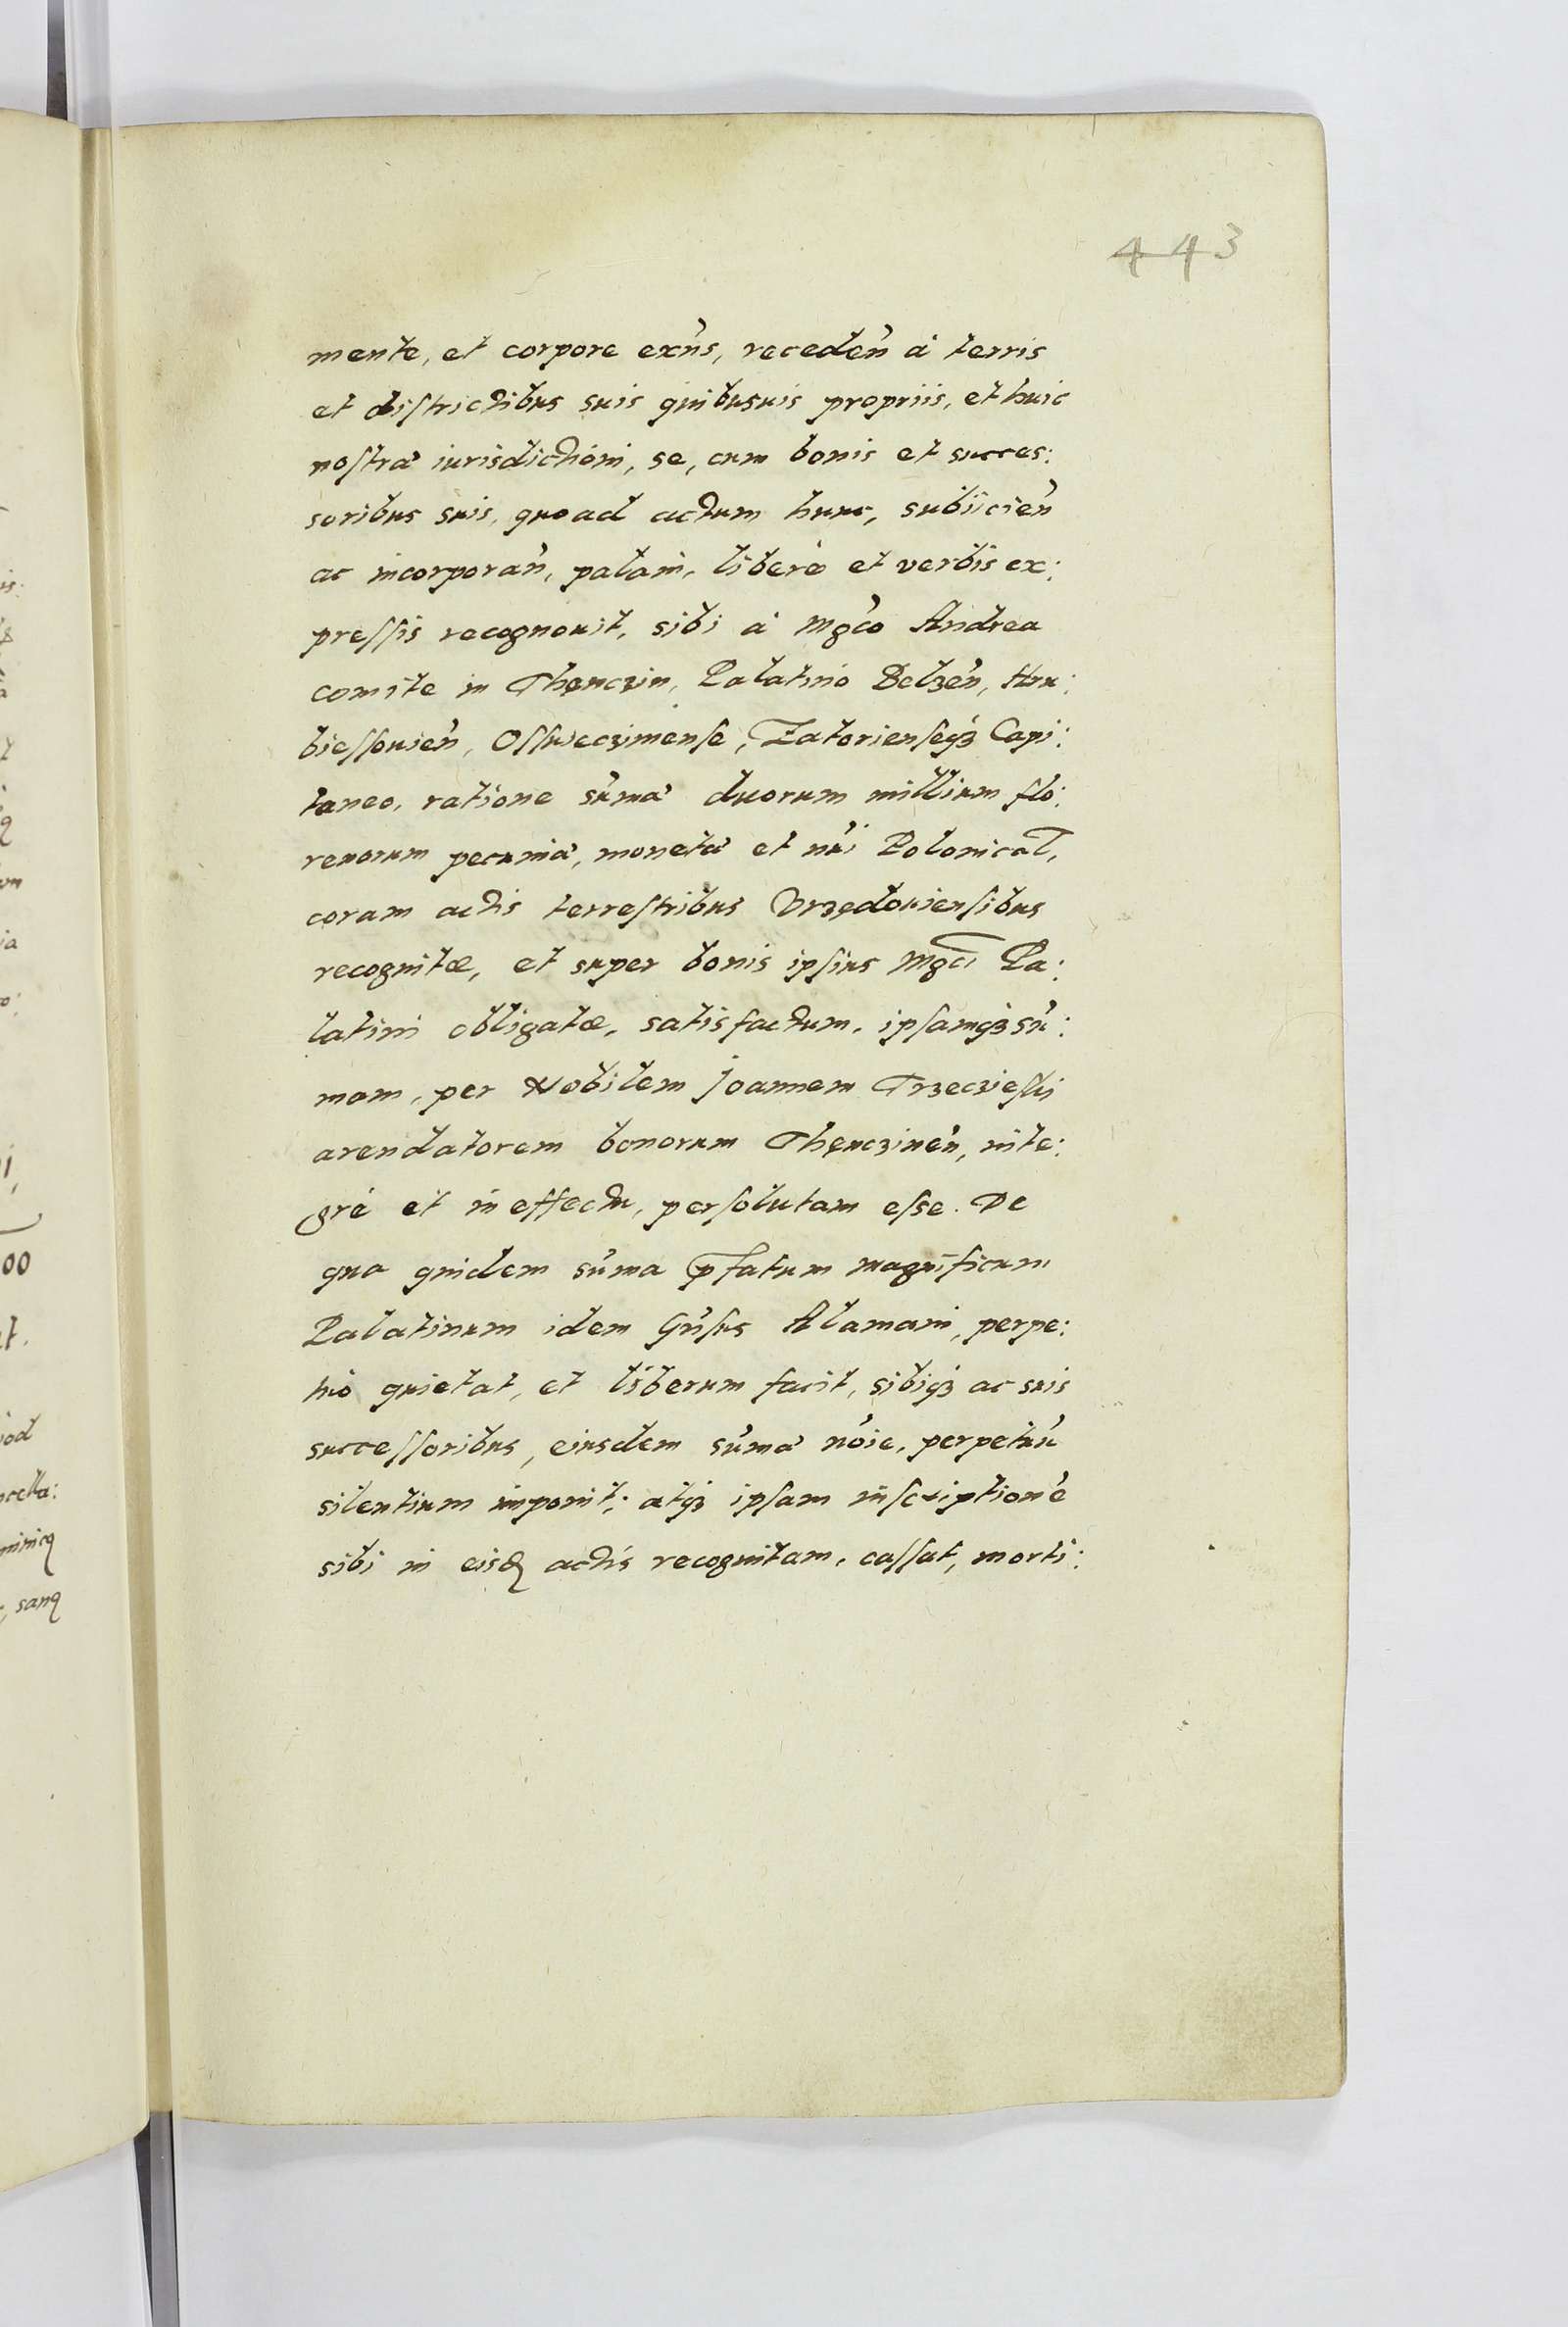 443
mente, et corpore exn̄s, receden̄ à terris
et districtibus suis quibusuis propriis, et huic
nostra iurisdictioni, se, cum bonis et succes:
soribus suis, quoad actum hunc, subiicien̄
ac incorporan̄, palam, liberè et verbis ex:
pressis recognouit, sibi à Mgc̄o Andrea
comite in Thęnczin, Palatino Belzen̄, Hru:
biessouien̄, Osswieczimense, Zatorienseqз Capi:
taneo, ratione sūma duorum millium flo:
renorum pecunia, moneta et nūi Polonical,
coram actis terrestribus Vrzędouiensibus
recognitæ, et super bonis ipsius Mgc̄i Pa:
latini obligatæ, satisfactum, ipsamqз sū:
mam, per Nobilem Joannem Trzecziesky
arendatorem bonorum Thęnczinen̄, inte:
gré et in effectu, persolutam esse. De
qua quidem sūma p̄fatum magnificum
Palatinum idem Gn̄sus Alamani, perpe:
tuò quietat, et liberum facit, sibiqз ac suis
successoribus, eiusdem sūma nōie, perpetuū
silentium imponit; atqз ipsam inscriptionē
sibi in eisd actis recognitam, cassat, morti: